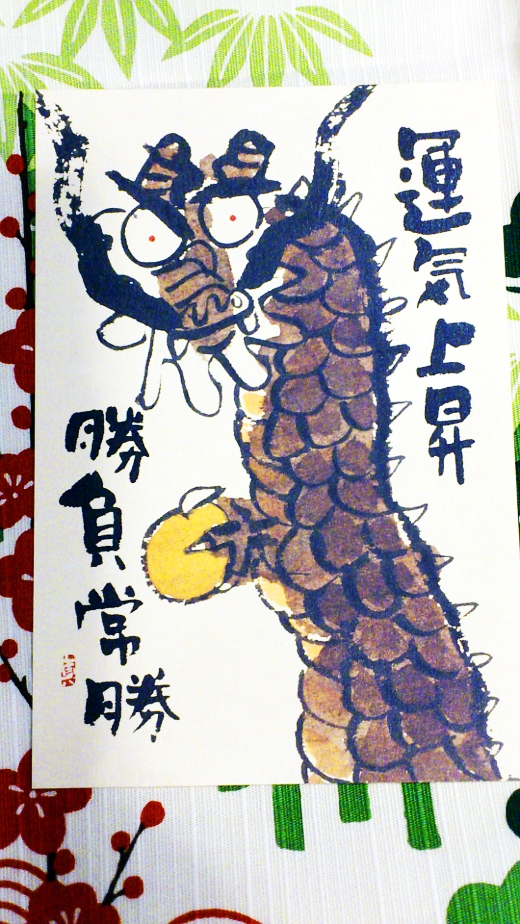 運気上昇
勝負常勝